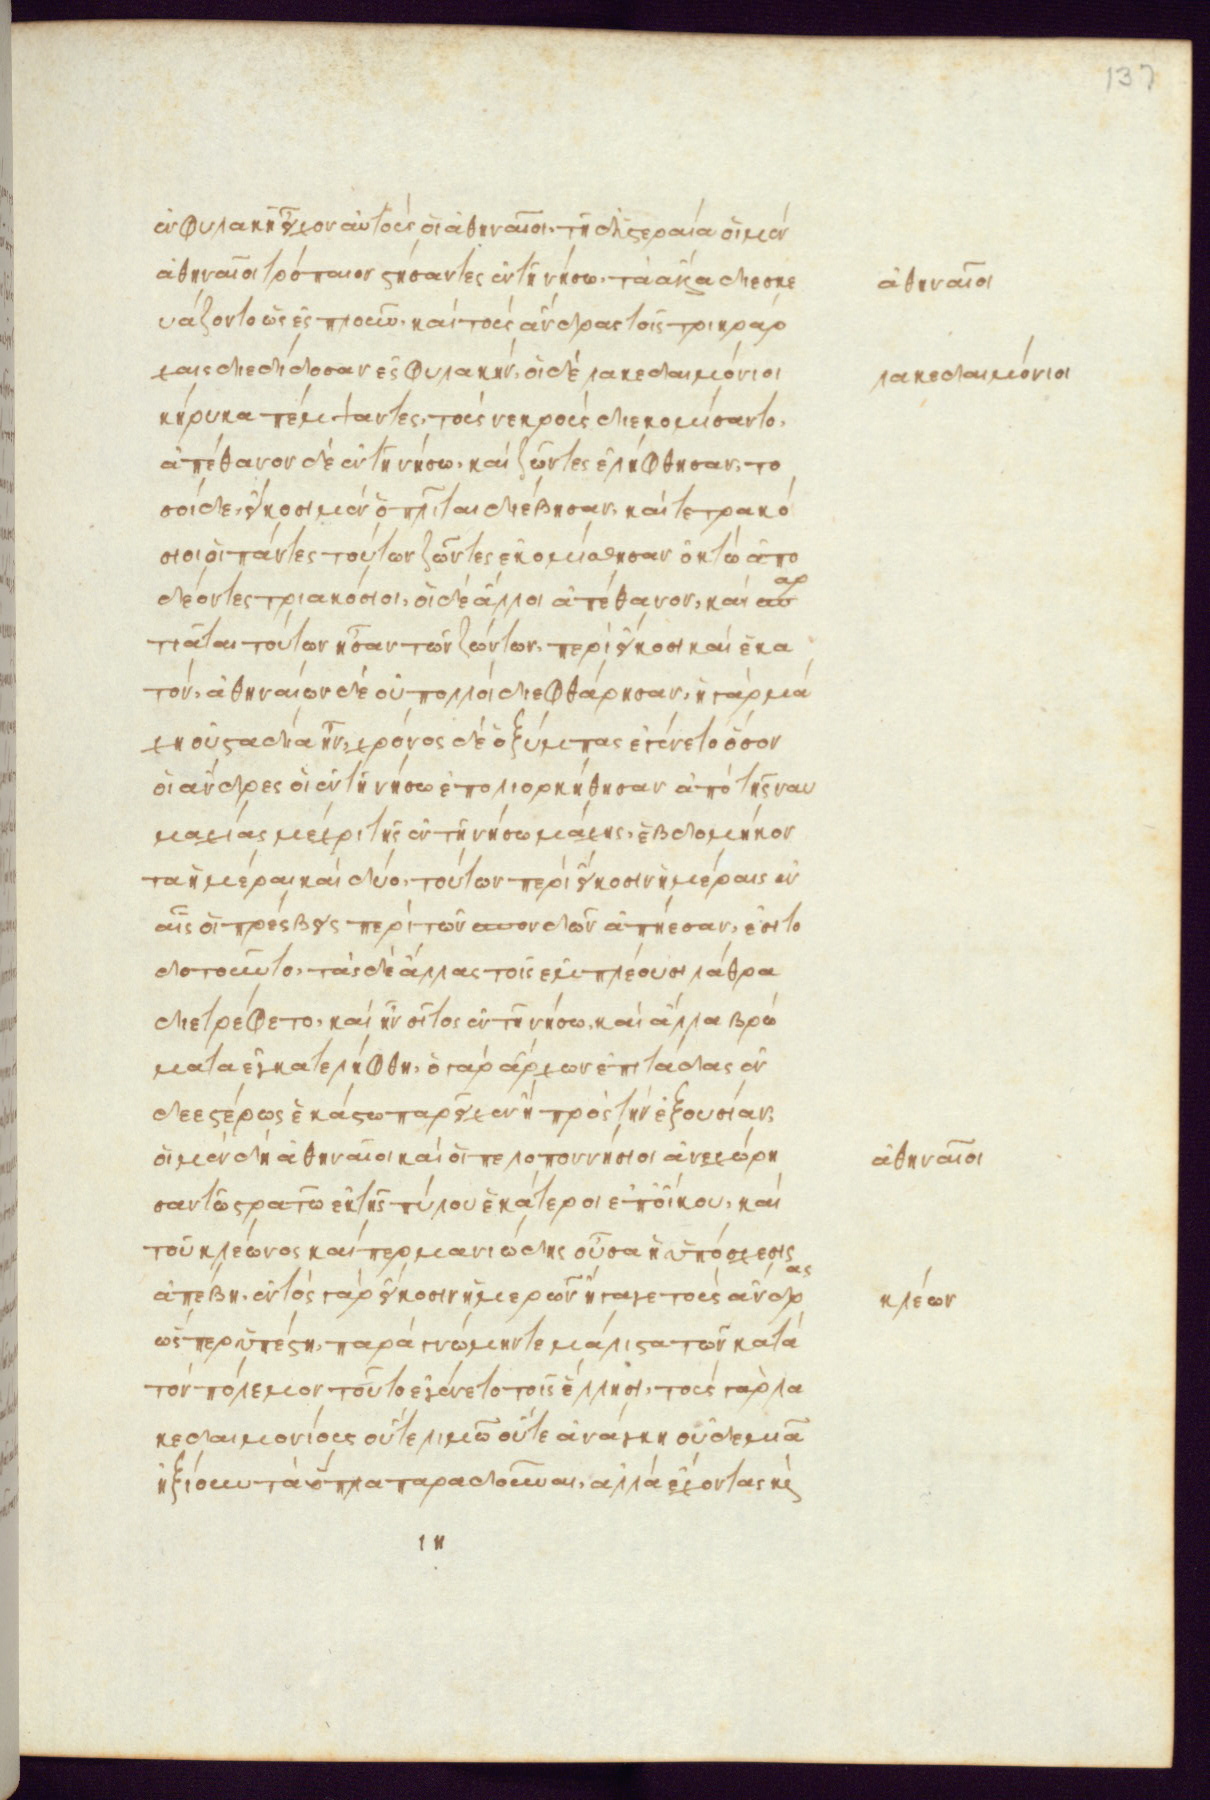 137
ἐν φυλακῆ εἶχον αὐτοὺς οἱ ἀθηναῖοι. τῆ δ' ὑστεραία οἱ μὲν
ἀθηναῖοι τρόπαιον στήσαντες ἐν τῆ νήσω, τὰ ἄλλα διεσκε
υάζοντο ὡς ἐς πλοῦν, καὶ τοὺς ἄνδρας τοῖς τριηράρ
χαις διεδίδοσαν ἐς φυλακήν, οἱ δὲ λακεδαιμόνιοι
κήρυκα πέμψαντες, τοὺς νεκροὺς διεκομίσαντο,
ἀπέθανον δὲ ἐν τῆ νήσω, καὶ ζῶντες ἐλήφθησαν, το
σοίδε, εἴκοσι μὲν ὁπλῖται διέβησαν, καὶ τετρακό
σιοι οἱ πάντες τούτων ζῶντες ἐκομίσθησαν ὀκτὼ ἀπο
δέοντες τριακόσιοι, οἱ δὲ ἄλλοι ἀπέθανον, καὶ σπ
αρ
τιᾶται τούτων ἦσαν τῶν ζώντων, περὶ εἴκοσι καὶ ἑκα
τόν, ἀθηναίων δὲ οὐ πολλοὶ διεφθάρησαν, ἡ γὰρ μά
χη οὐ σταδία ἦν, χρόνος δὲ ὁ ξύμπας ἐγένετο ὅσον
οἱ ἄνδρες οἱ ἐν τῆ νήσω ἐπολιορκήθησαν ἀπὸ τῆς ναυ
μαχίας μέχρι τῆς ἐν τῆ νήσω μάχης, ἑβδομήκον
τα ἡμέραι καὶ δύο, τούτων περὶ εἴκοσιν ἡμέραις ἐν
αἷς οἱ πρέσβεις περὶ τῶν σπονδῶν ἀπήεσαν, ἐσιτο
δοτοῦντο, τὰς δὲ ἄλλας τοῖς ἐμπλέουσι λάθρα
διετρέφετο, καὶ ἦν σῖτος ἐν τῆ νήσω, καὶ ἄλλα βρώ
ματα ἐγκατελήφθη, ὁ γὰρ ἄρχων ἐπιτάδας ἐν
δεεστέρως ἑκάστω παρεῖχεν ἢ πρὸς τὴν ἐξουσίαν,
οἱ μὲν δὴ ἀθηναῖοι καὶ οἱ πελοποννήσιοι ἀνεχώρη
σαν τῶ στρατῶ ἐκ τῆς πύλου ἑκάτεροι ἐπ' οἴκου, καὶ
τοῦ κλέωνος καίπερ μανιώδης οὖσα ἡ ὑπόσχεσις
ἀπέβη, ἐντὸς γὰρ εἴκοσιν ἡμερῶν ἤγαγε τοὺς ἄνδρ
ας
ὥσπερ ὑπέστη, παρὰ γνώμην τε μάλιστα τῶν κατὰ
τὸν πόλεμον τοῦτο ἐγένετο τοῖς ἕλλησι, τοὺς γὰρ λα
κεδαιμονίους οὔτε λιμῶ οὔτε ἀνάγκη οὐδεμιᾶ
ἠξίουν τὰ ὅπλα παραδοῦναι, ἀλλὰ ἔχοντας καὶ
ιη
ἀθηναῖοι
λακεδαιμόνιοι
ἀθηναῖοι
κλέων